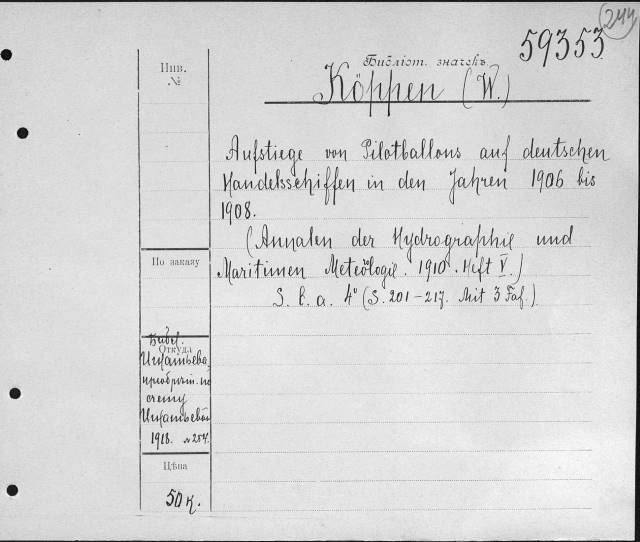 244
59353
Инв.
№
Библіот. значекъ.
Köppen (W.)
Aufstiege von Pilotballons auf deutschen
Handelsschiffen in den Jahren 1906 bis
1908.
(Annalen der Hydrographie und
Maritimen Meteorologie. 1910. Heft V.)
S. l. a. 4° (S. 201-217. Mit 3 Taf.)
По заказу
Откуда
Библ.
Игнатьева,
приобрѣт. по
счету
Игнатьевой
1918. № 254.
Цѣна
50 к.